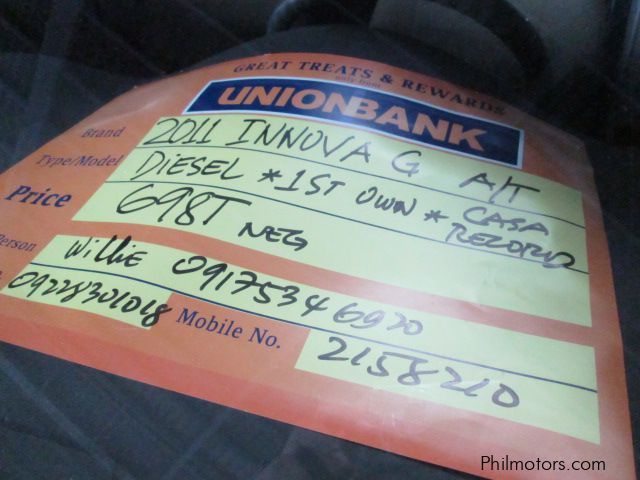 GREAT TREATS & REWARDS
only from
UNIONBANK
Brand 2011 INNOVA G A/T
Type/Model DIESEL * 1ST OWN * CASA RECORD
Price 698T NEG
Person Willie 09175346920
09228301018 Mobile No. 2158210
Philmotors.com